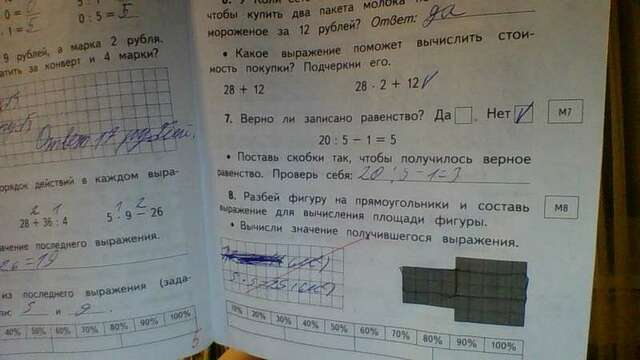 0 : 5 = 5
9 рублей, а марка 2 рубля.
за конверт и 4 марки?
Ответ 17 рублей.
порядок действий в каждом выра-
2 1
28 + 36 : 4
1 2
5 · 9 − 26
значение последнего выражения.
26 = 19
из последнего выражения (зада-
5 и 9
40% 50% 60% 70% 80% 90% 100%
5
чтобы купить два пакета молока
мороженое за 12 рублей? Ответ: да
• Какое выражение поможет вычислить стои-
мость покупки? Подчеркни его.
28 + 12
28 · 2 + 12 V
7. Верно ли записано равенство? Да □. Нет V М7
20 : 5 − 1 = 5
• Поставь скобки так, чтобы получилось верное
равенство. Проверь себя: 20 : 5 − 1 = 3
8. Разбей фигуру на прямоугольники и составь М8
выражение для вычисления площади фигуры.
• Вычисли значение получившегося выражения.
10% 20% 30% 40% 50% 60% 70% 80% 90% 100%